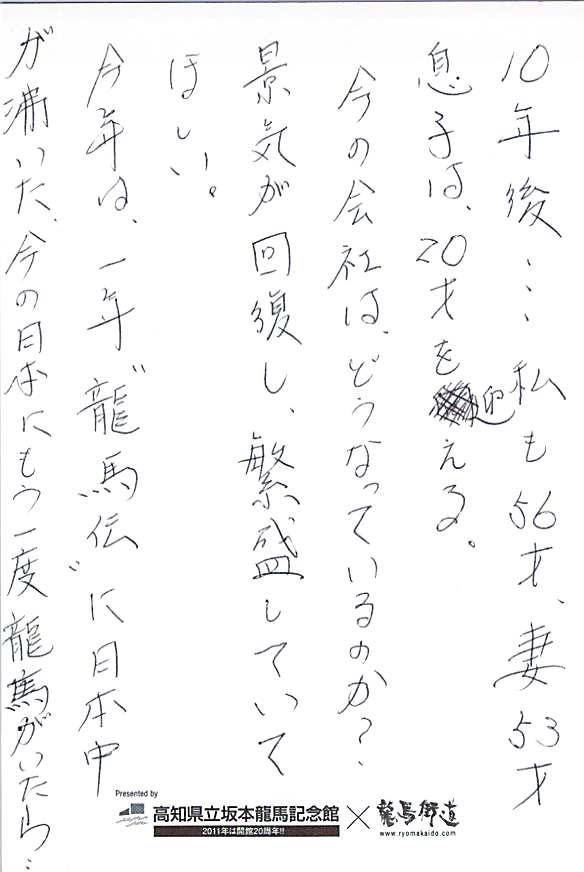 10年後… 私も56才、妻53才
息子は、20才を迎える。
今の会社は、どうなっているのか？
景気が回復し、繁盛していて
ほしい。
今年は、一年“龍馬伝”に日本中
が沸いた、今の日本にもう一度龍馬がいたら…
Presented by
高知県立坂本龍馬記念館
2011年は開館20周年!!
×
龍馬街道
www.ryomakaido.com